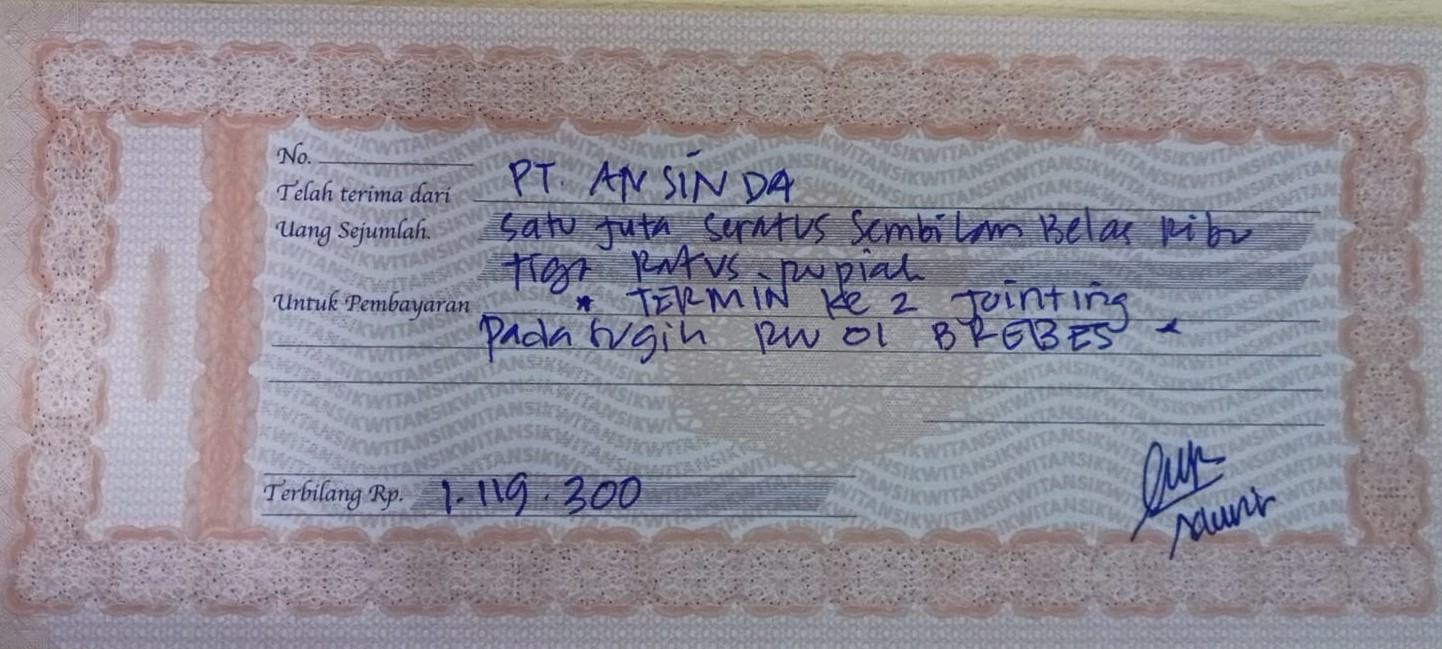 No.
Telah terima dari PT. ANSINDA
Uang Sejumlah. Satu Juta Seratus Sembilan Belas Ribu
Tiga Ratus rupiah
Untuk Pembayaran * TERMIN Ke 2 Jointing
Pada RW 01 BREBES *
Terbilang Rp. 1.119.300